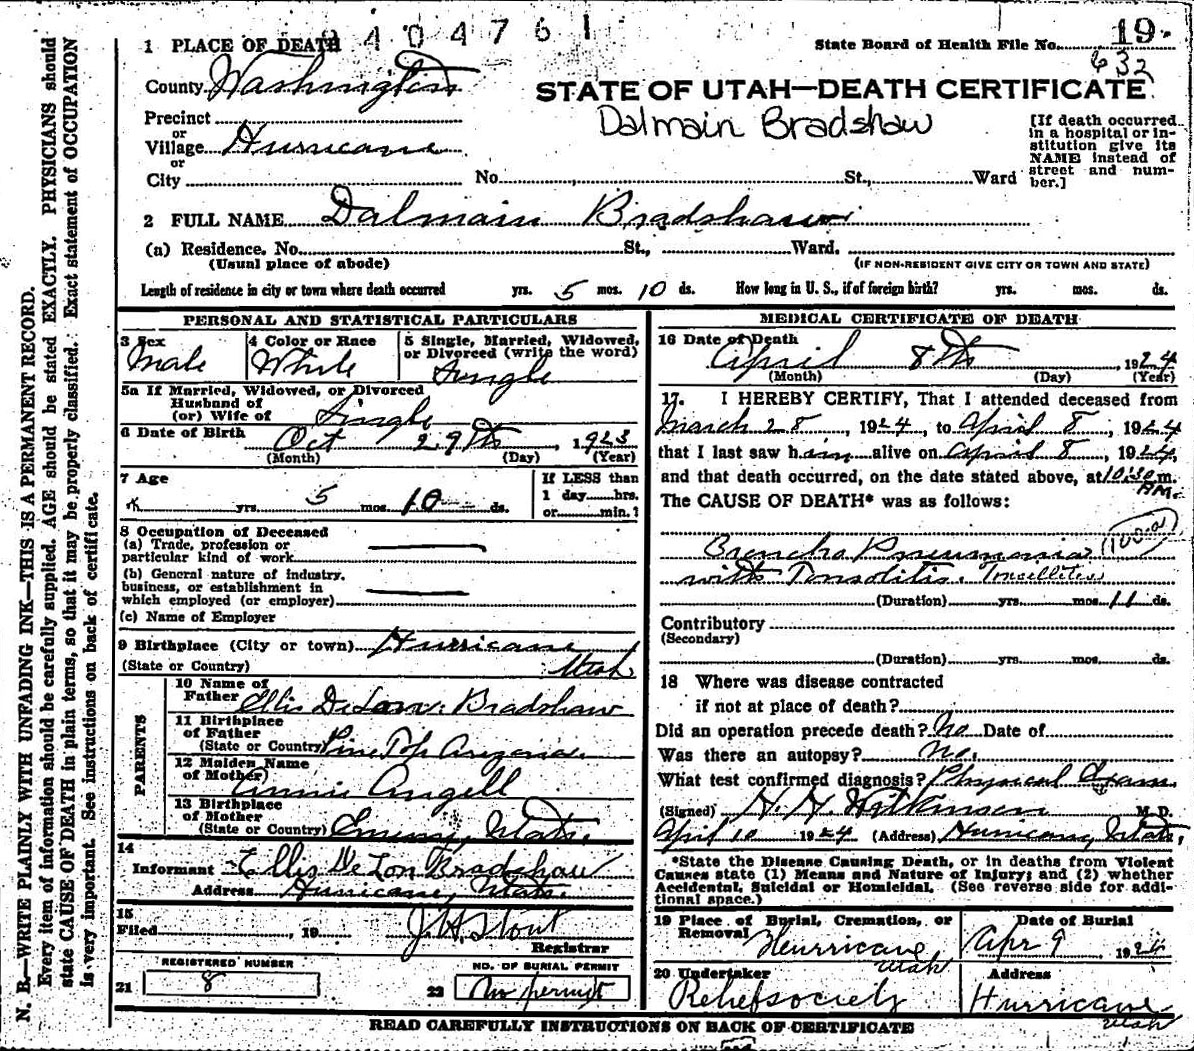 404761
19-
1 PLACE OF DEATH
State Board of Health File No.
632
County Washington
STATE OF UTAH—DEATH CERTIFICATE
Dalmain Bradshaw
Precinct
or
Village Hurricane
or
City No. St., Ward
[If death occurred in a hospital or in-
stitution give its
NAME instead of
street and num-
ber.]
2 FULL NAME Dalmain Bradshaw
(a) Residence. No. St., Ward.
(Usual place of abode)
(IF NON-RESIDENT GIVE CITY OR TOWN AND STATE)
Length of residence in city or town where death occurred yrs. 5 mos. 10 ds. How long in U. S., if of foreign birth? yrs. mos. ds.
PERSONAL AND STATISTICAL PARTICULARS
3 Sex
Male
4 Color or Race
White
5 Single, Married, Widowed,
or Divorced (write the word)
Single
5a If Married, Widowed, or Divorced
Husband of
(or) Wife of Single
6 Date of Birth Oct 29th 1923
(Month) (Day) (Year)
7 Age
yrs. 5 mos. 10 ds.
If LESS than
1 day hrs.
or min.?
8 Occupation of Deceased
(a) Trade, profession or
particular kind of work
(b) General nature of industry,
business, or establishment in
which employed (or employer)
(c) Name of Employer
9 Birthplace (City or town) Hurricane
(State or Country) Utah
PARENTS
10 Name of
Father Ellis DeLon Bradshaw
11 Birthplace
of Father
(State or Country) Pine Top Arizona.
12 Maiden Name
of Mother) Annie Angell
13 Birthplace
of Mother
(State or Country) Emery, Utah.
14
Informant Ellis DeLon Bradshaw
Address Hurricane, Utah.
15
Filed , 19 J. H. Stout
Registrar
21 REGISTERED NUMBER
8
22 NO. OF BURIAL PERMIT
No permit
MEDICAL CERTIFICATE OF DEATH
16 Date of Death
April 8th 1924
(Month) (Day) (Year)
17. I HEREBY CERTIFY, That I attended deceased from
March 28, 1924, to April 8, 1924
that I last saw him alive on April 8, 1924,
and that death occurred, on the date stated above, at 10:30 m.
A.M.
The CAUSE OF DEATH* was as follows:
Broncho Pneumonia
with Tonsolitis. Tonsillitis
(Duration) yrs. mos. 11 ds.
Contributory
(Secondary)
(Duration) yrs. mos. ds.
18 Where was disease contracted
if not at place of death?
Did an operation precede death? No Date of
Was there an autopsy? No.
What test confirmed diagnosis? Physical Exam
(Signed) H. H. Wilkinson M. D.
April 10 1924 (Address) Hurricane, Utah,
*State the Disease Causing Death, or in deaths from Violent
Causes state (1) Means and Nature of Injury; and (2) whether
Accidental, Suicidal or Homicidal. (See reverse side for addi-
tional space.)
19 Place of Burial, Cremation, or
Removal Hurricane
Utah
Date of Burial
Apr 9 1924
20 Undertaker
Relief society
Address
Hurricane
Utah
READ CAREFULLY INSTRUCTIONS ON BACK OF CERTIFICATE
N. B.—WRITE PLAINLY WITH UNFADING INK—THIS IS A PERMANENT RECORD.
Every item of information should be carefully supplied. AGE should be stated EXACTLY. PHYSICIANS should
state CAUSE OF DEATH in plain terms, so that it may be properly classified. Exact statement of OCCUPATION
is very important. See instructions on back of certificate.